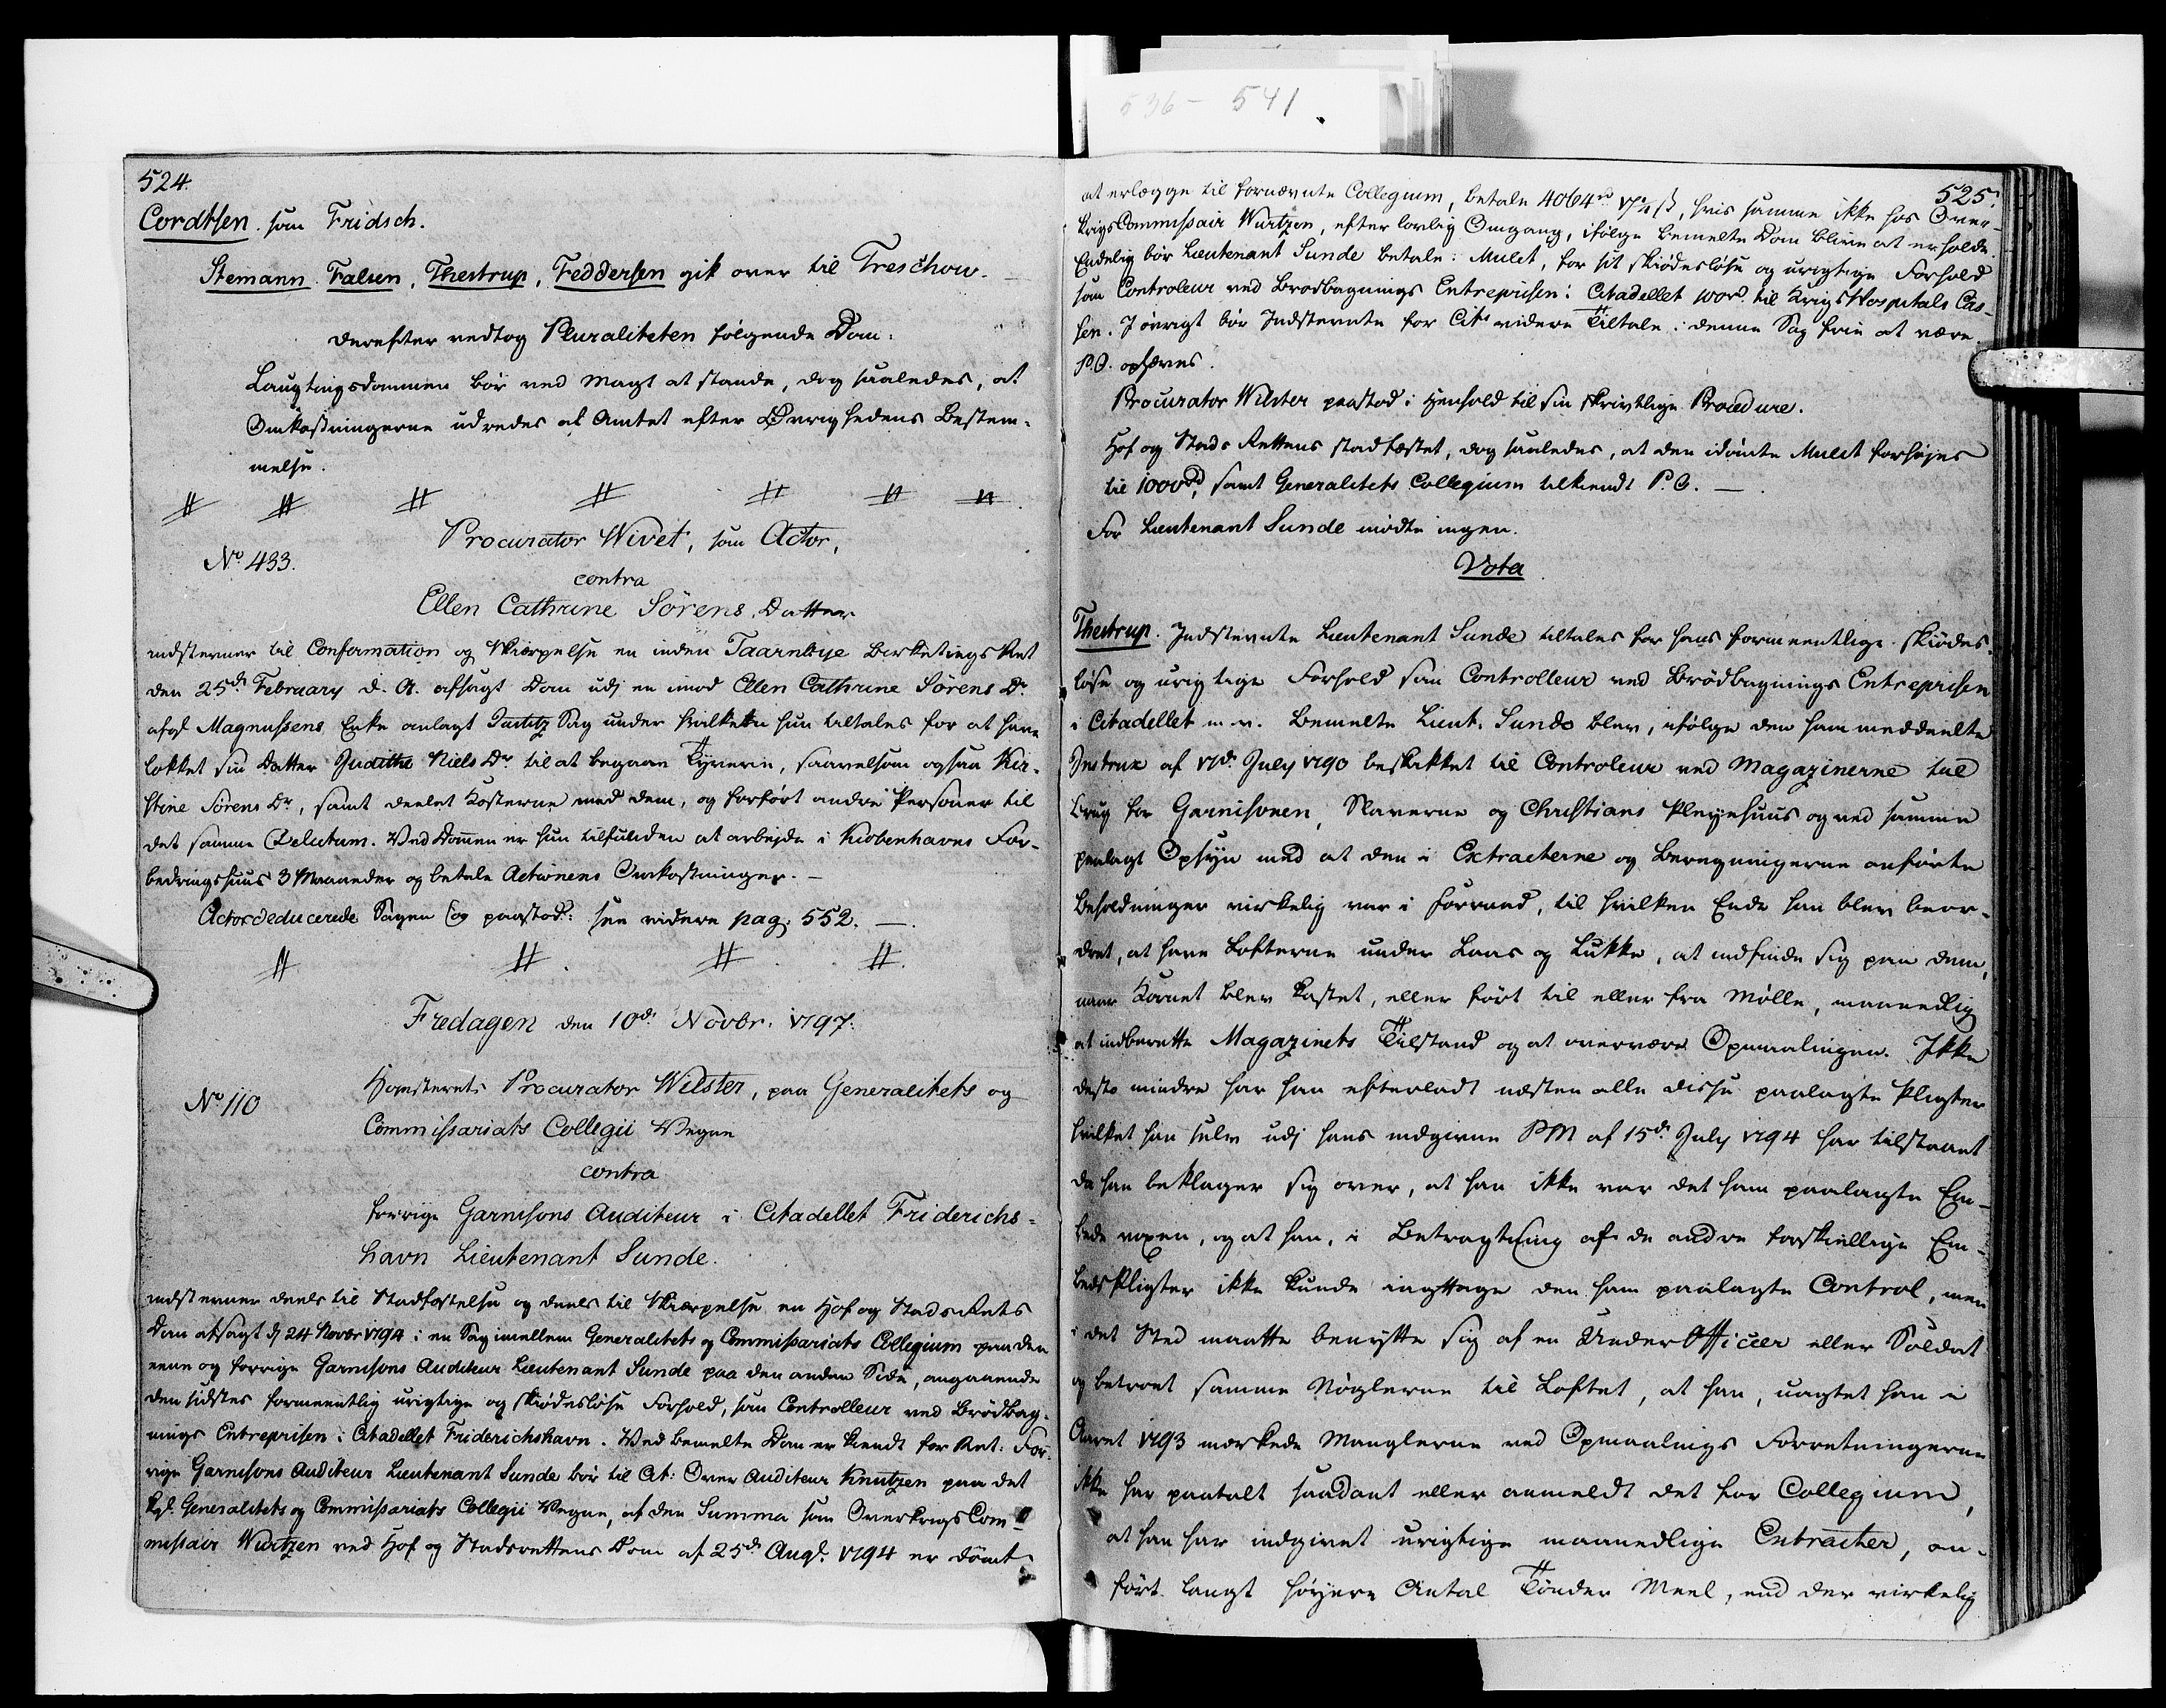 536 - 541.
524.
Cordtsen. som Fridsch.
Stemann. Falsen, Thestrup, Feddersen gik over til Treschow.
Derefter vedtog Pluraliteten følgende Dom:
Laugtingsdommen bør ved Magt at stande, dog saaledes, at
Omkostningerne udredes af Amtet efter Øvrighedens Bestem-
melse.
Procurator Wivet, som Actor,
No 433.
contra
Ellen Cathrine Sörens Datter
indstevner til Confirmation og Skiærpelse en inden Taarnbye Birketings Ret
den 25de February d. A. afsagt Dom udj en imod Ellen Cathrine Sörens Dr
afgl Magnussens Enke anlagt Justitz Sag under hvilken hun tiltales for at have
lokket sin Datter Judithe Niels Dr til at begaae Tyverie, saavelsom ogsaa Kir-
stine Sörens Dr, samt deelet Kosterne med dem, og forført andre Personer til
det samme Delictum. Ved Dommen er hun tilfunden at arbejde i Kiøbenhavns For-
bedringshuus 3 Maaneder og betale Actionens Omkostninger. -
Actor deducerede Sagen og paastod: see videre pag. 552. -
Fredagen den 10de Novbr. 1797.
No 110
Procurator Wilster, paa Generalitets og
Commissariats Collegii Vegne
contra
forrige Garnisons Auditeur i Citadellet Friderichs-
havn Lieutenant Sunde.
indstevner deels til Stadfæstelse og deels til Skiærpelse en Hof og Stads Rets
Dom afsagt dj 24 Novbr 1794 i en Sag imellem Generalitets og Commissariats Collegium paa den
eene og forrige Garnisons Auditeur Lieutenant Sunde paa den anden Side, angaaende
den sidstes formeentlig urigtige og skiødesløse Forhold, som Controlleur ved Brödbag-
nings Entreprisen i Citadellet Friderichshavn. Ved bemelte Dom er kiendt for Ret: For-
rige Garnisons Auditeur Lieutenant Sunde bör til Cit: Over Auditeur Knutzen paa det
Kgl. Generalitets og Commissariats Collegii Vegne, af den Summa som Overkrigs Com-
missair Wurtzen ved Hof og Stadsrettens Dom af 25de Augl. 1794 er dömt
525.
at erlægge til fornævnte Collegium, betale 4064 rd 17 1/4 ß, hvis samme ikke hos Over-
krigs Commissair Wurtzen, efter lovlig Omgang, ifølge bemelte Dom bliver at erholde.
Endelig bör Lieutenant Sunde betale i Mulct, for sit skiødesløse og urigtige Forhold
som Controleur ved Brødbagnings Entreprisen i Citadellet 100rd til Krigs Hospitals Cas-
sen. I øvrigt bør Indstevnte for Cits videre Tiltale i denne Sag frie at være.
P. O. ophæves.
Procurator Wilster paastod i Henhold til sin skrivtlige Procedure.
Hof og Stads Rettens stadfæstet, dog saaledes, at den idömte Mulct forhöjes
til 1000rd, samt Generalitets Collegium tilkiendt P. O. -
For Lieutenant Sunde mødte ingen.
Vota
Thestrup. Indstevnte Lieutenant Sunde tiltales for hans formeentlige skiødes-
løse og urigtige Forhold som Controlleur ved Brödbagnings Entreprisen
i Citadellet m. v. Bemelte Lieut. Sunde blev, ifølge den ham meddeelte
Instrux af 17de July 1790 beskikket til Controleur ved Magazinerne til
Brug for Garnisonen, Slaverne og Christians Plejehuus og ved samme
paalagt Opsyn med at den i Extracterne og Beregningerne anførte
Beholdninger virkelig var i Forraad, til hvilken Ende han blev beor-
dret, at have Lofterne under Laas og Lukke, at indfinde sig paa dem,
naar Kornet blev kastet, eller ført til eller fra Mølle, maanedlig
at indberette Magazinets Tilstand og at overvære Opmaalingen. Ikke
desto mindre har han efterladt næsten alle disse paalagte Pligter
hvilket han selv udj hans indgivne PM af 15de July 1794 har tilstaaet
da han beklager sig over, at han ikke var det ham paalagte Em-
bede voxen, og at han, i Betragtning af de andre forskiellige Em-
beds Pligter ikke kunde iagttage den ham paalagte Control, men
i det Sted maatte benytte sig af en Under Officeer eller Soldat
og betroet samme Nöglerne til Loftet, at han, uagtet han i
Aaret 1793 mærkede Manglerne ved Opmaalings Forretningerne
ikke har paatalt saadant eller anmeldt det for Collegium,
at han har indgivet urigtige maanedlige Extracter, an-
ført langt höjere Antal Tönder Meel, end der virkelig